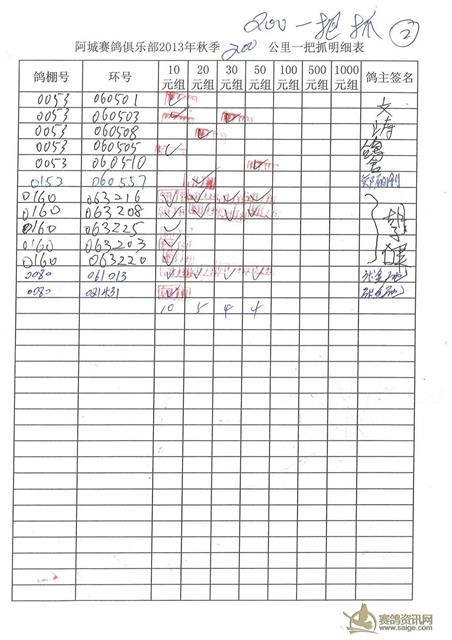 200 一把抓 ②
阿城赛鸽俱乐部2013年秋季 200 公里一把抓明细表
鸽棚号 环号 10元组 20元组 30元组 50元组 100元组 500元组 1000元组 鸽主签名
0053 060501 ✓
0053 060503
0053 060508
0053 060505 ✓
0053 060510
0153 060557
0160 063216 ✓ ✓ ✓ ✓
0160 063208 ✓ ✓ ✓ ✓
0160 063225 ✓
0160 063203 ✓
0160 063220 ✓
0080 061013 ✓ ✓ ✓ ✓
0080 ✓
10 5 4 4
赛鸽资讯网
www.saige.com